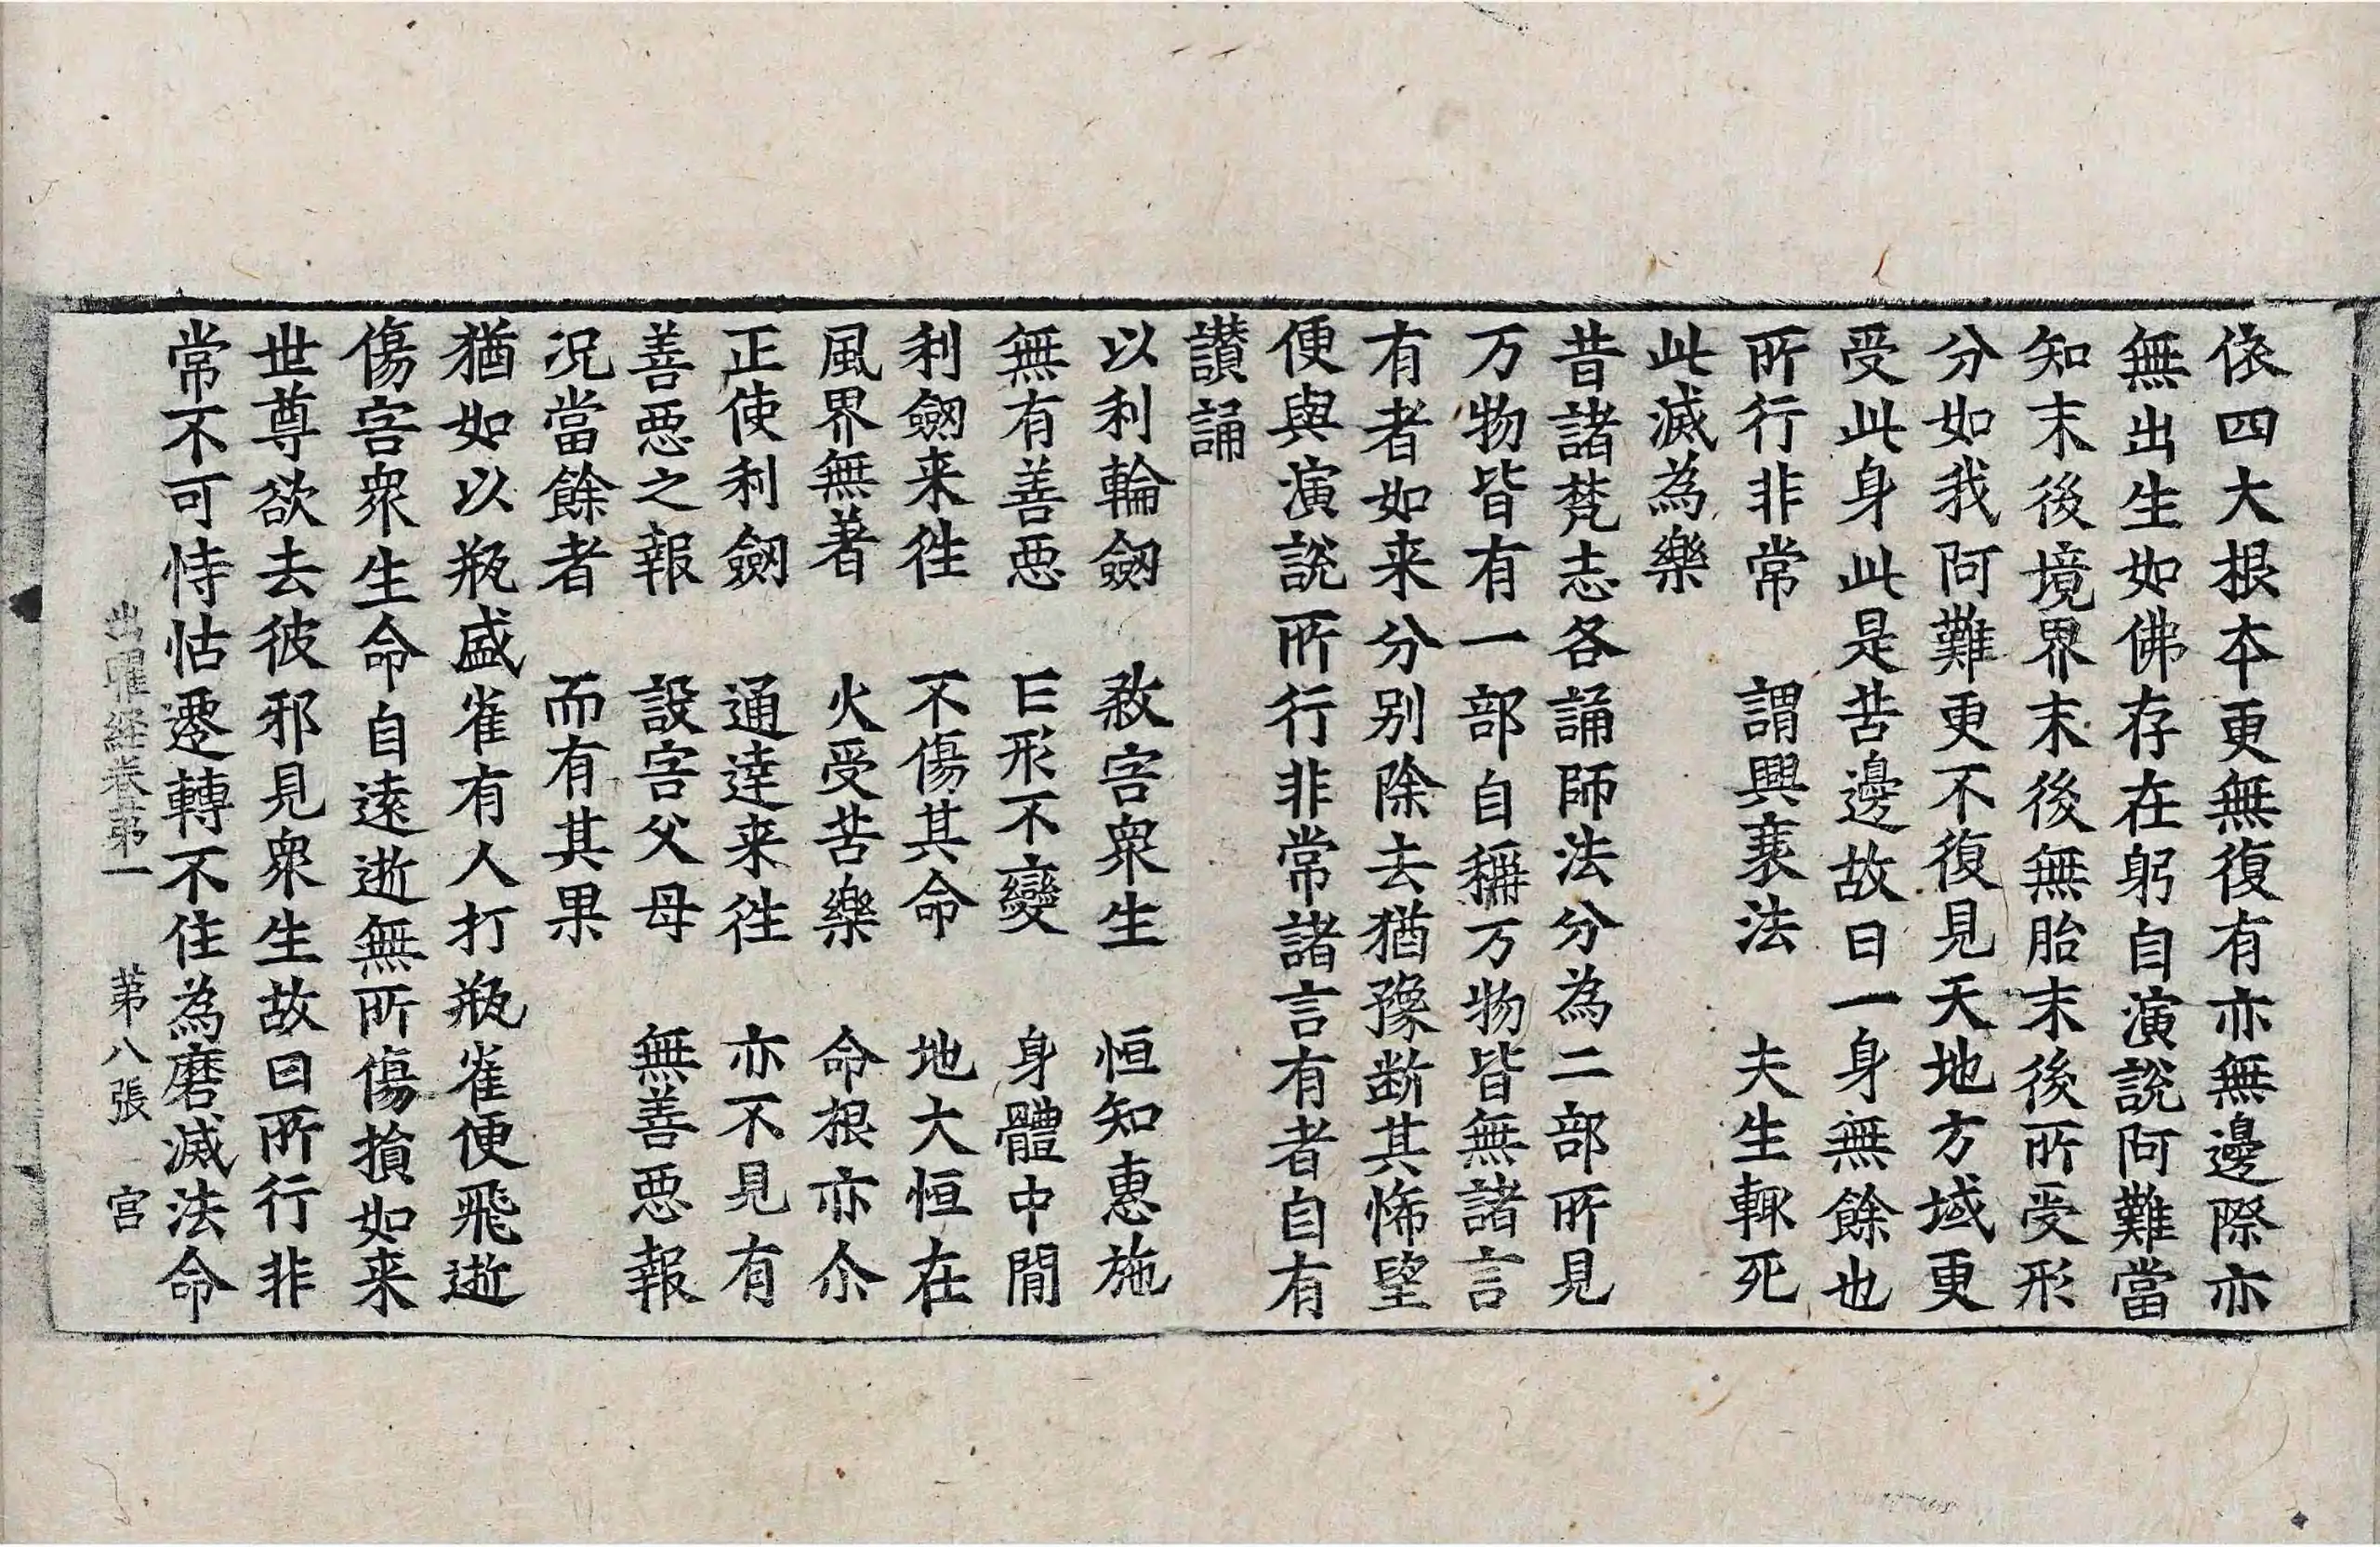 依四大根本更無復有亦無邊際亦
無出生如佛存在躬自演說阿難當
知末後境界末後無胎末後所受形
分如我阿難更不復見天地方域更
受此身此是苦邊故曰一身無餘也
所行非常　謂興衰法　夫生輙死
此滅為樂
昔諸梵志各誦師法分為二部所見
万物皆有一部自稱万物皆無諸言
有者如来分別除去猶豫断其悕望
便與演說所行非常諸言有者自有
讃誦
以利輪劒　煞害衆生　恒知惠施
無有善惡　正形不變　身體中閒
利劒来往　不傷其命　地大恒在
風界無著　火受苦樂　命根亦尒
正使利劒　通達来往　亦不見有
善惡之報　設害父母　無善惡報
况當餘者　而有其果
猶如以瓶盛雀有人打瓶雀便飛逝
傷害衆生命自遠逝無所傷損如来
世尊欲去彼邪見衆生故曰所行非
常不可恃怙遷轉不住為磨滅法命
出曜経卷苐一　苐八張　宫